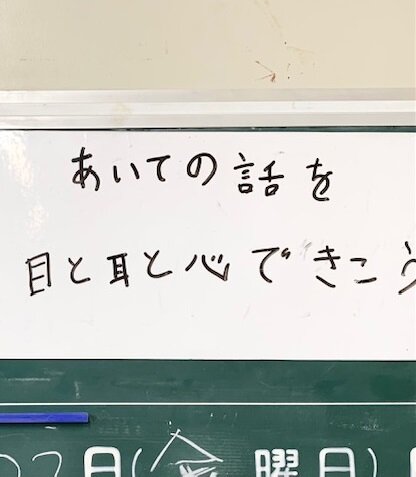 あいての話を
目と耳と心できこう
日(金曜日)